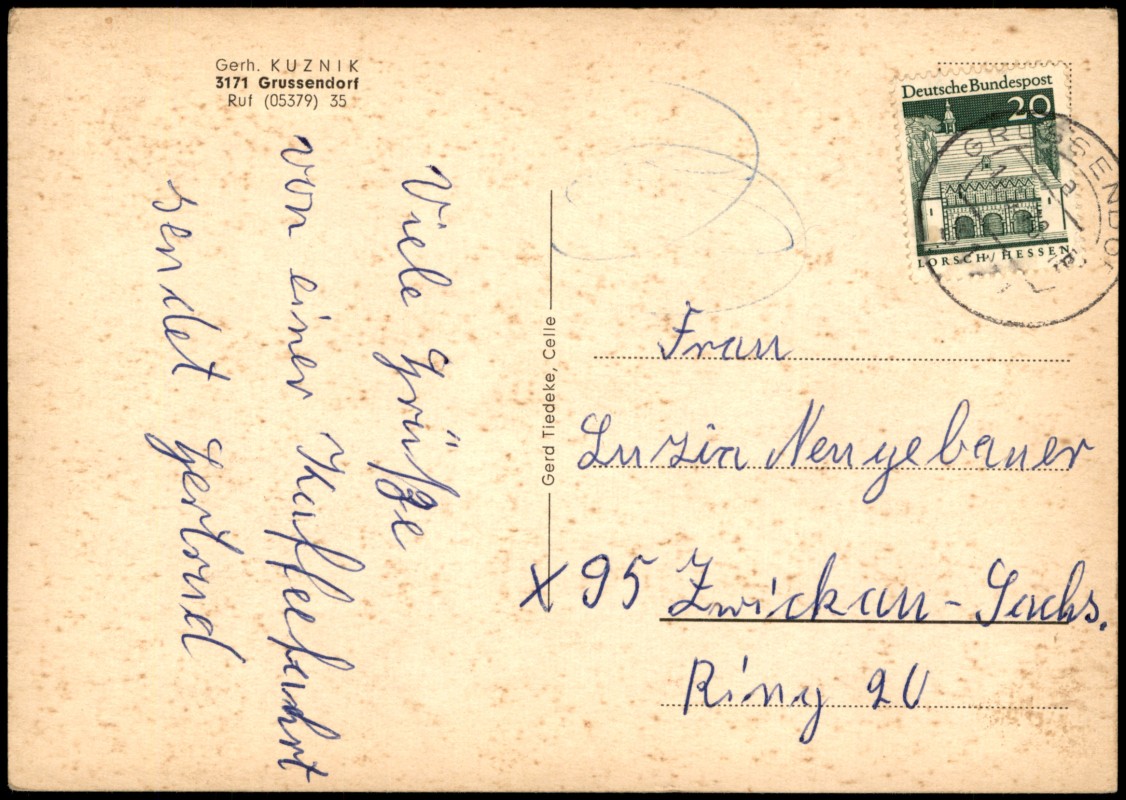 Gerh. KUZNIK
3171 Grussendorf
Ruf (05379) 35
Viele Grüße
von einer Kaffeefahrt
sendet Gertrud
Gerd Tiedeke, Celle
Deutsche Bundespost
20
LORSCH / HESSEN
GRUSSENDOR
Frau
Luzia Neugebauer
X 95 Zwickau - Sachs.
Ring 20